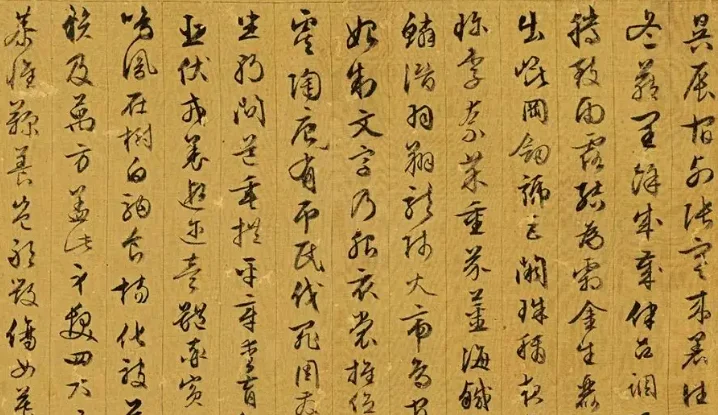 昃辰宿列張寒來暑往
冬藏閏餘成歲律呂調
騰致雨露結為霜金生麗
出崑岡劍號巨闕珠稱夜
珍李柰菜重芥薑海鹹
鱗潛羽翔龍師火帝鳥官
始制文字乃服衣裳推位
虞陶唐有弔民伐罪周發
坐朝問道垂拱平章愛育
臣伏戎羌遐邇壹體率賓
鳴鳳在樹白駒食場化被草
賴及萬方蓋此身髮四大五
恭惟鞠養豈敢毀傷女慕